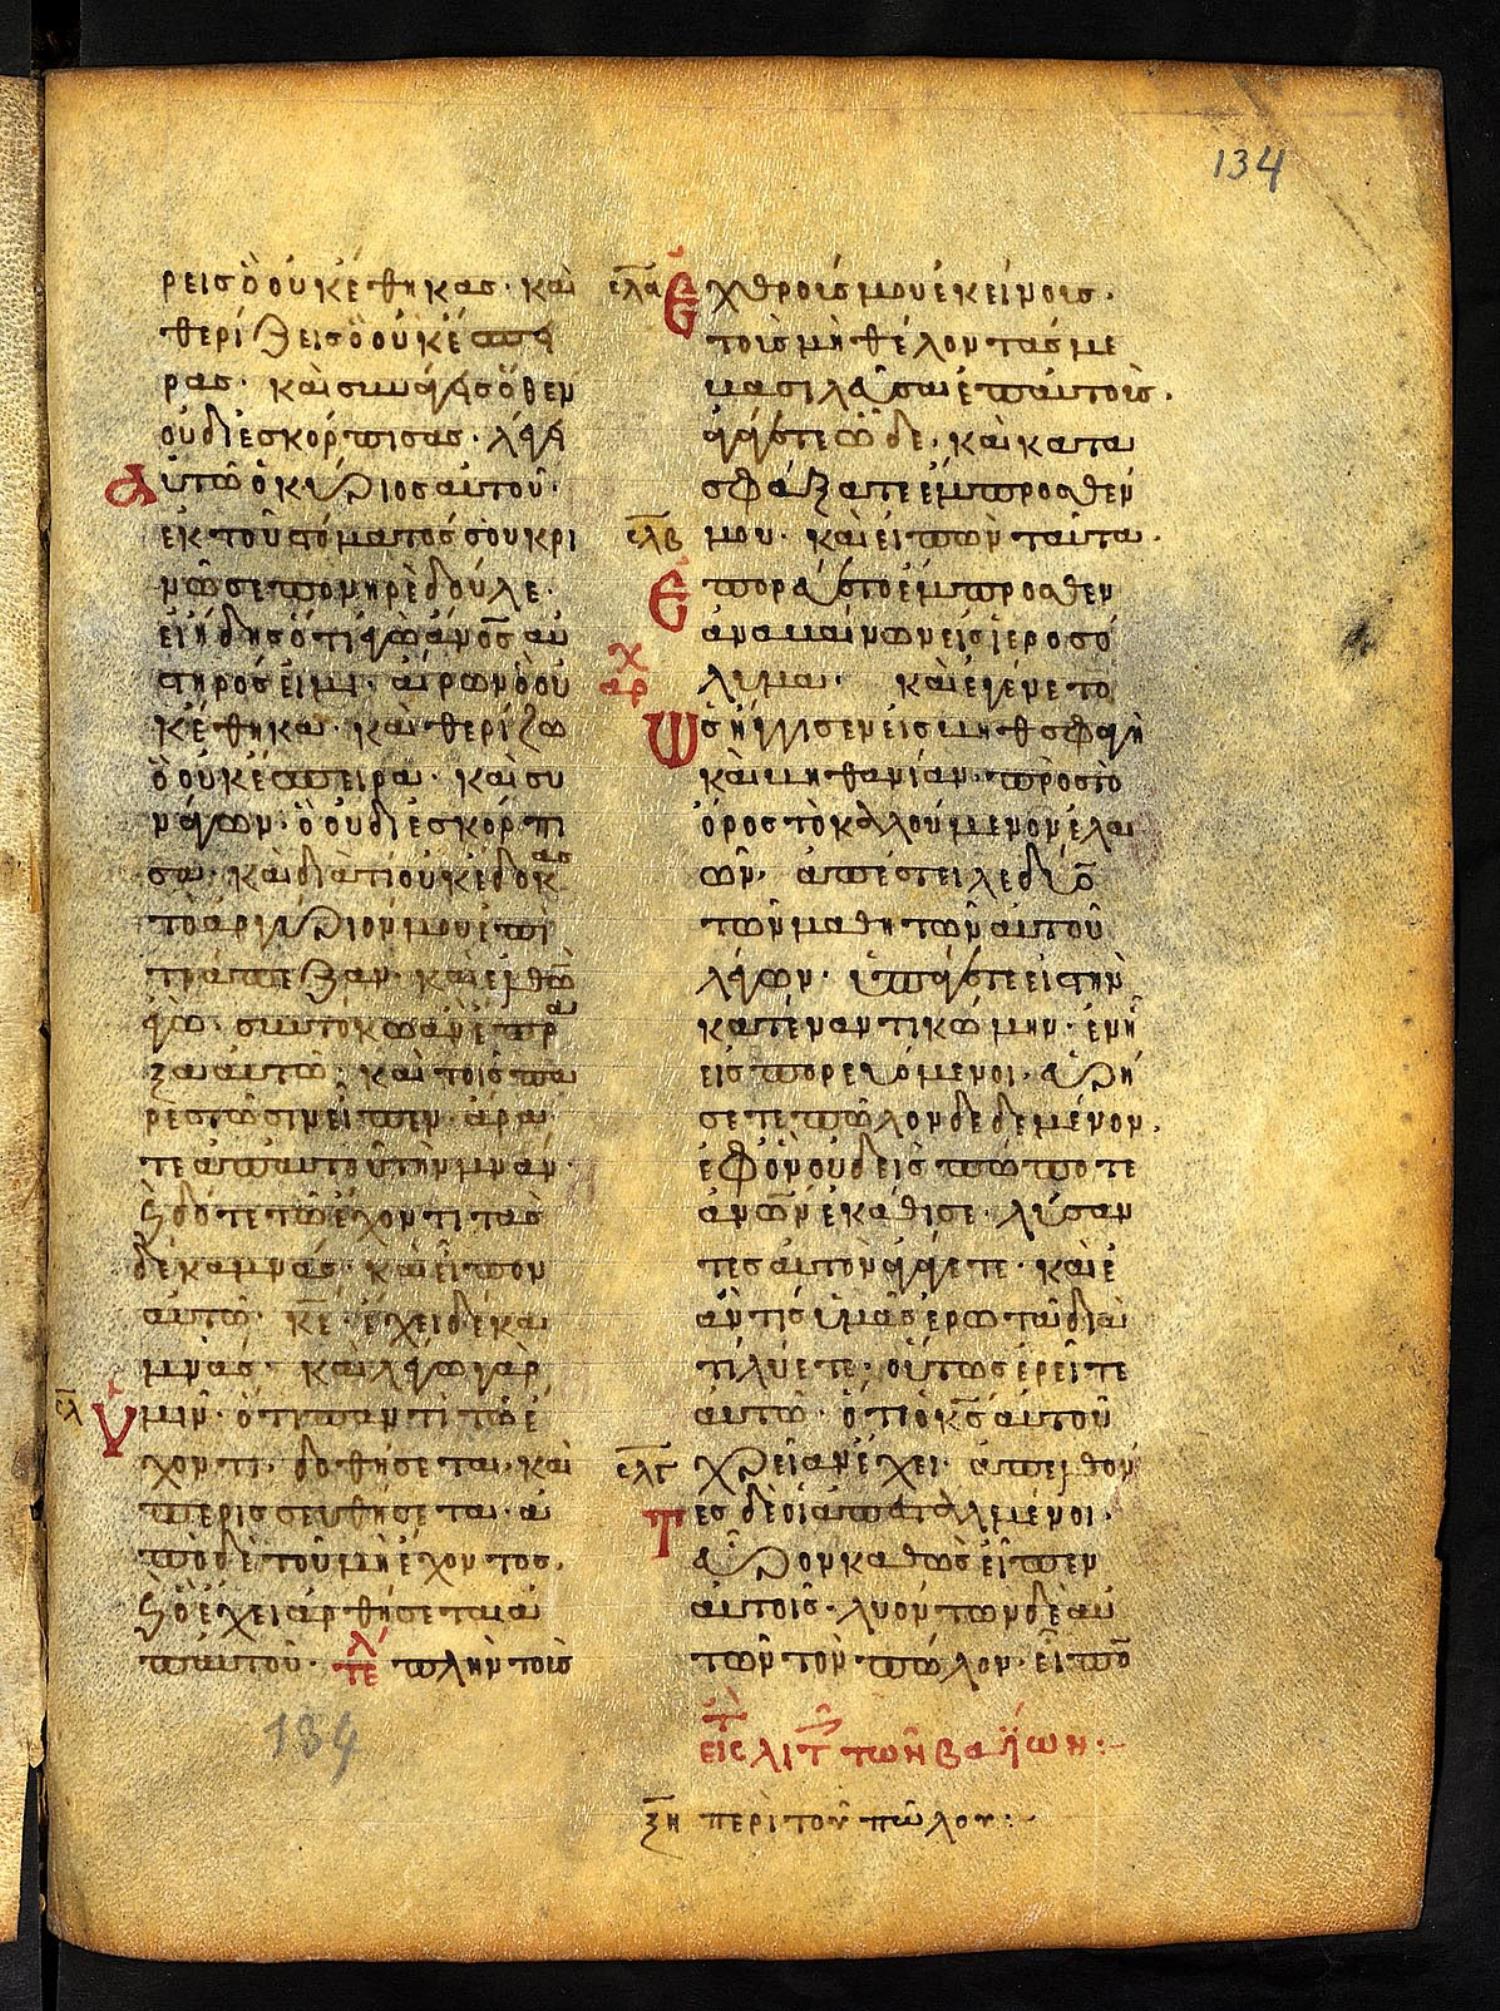 134
ρεις ὃ οὐκ ἔθηκας· καὶ
θερίζεις ὃ οὐκ ἔσπει
ρας· καὶ συνάγεις ὅθεν
οὐ διεσκόρπισας· λέγει
αὐτῶ ὁ κύριος αὐτοῦ·
ἐκ τοῦ στόματός σου κρι
νῶ σε πονηρὲ δοῦλε·
εἰ ἤδης ὅτι ἐγὼ ἄνο̅ς αὐ
στηρός εἰμι· αἴρων ὃ οὐ
κ ἔθηκα· καὶ θερίζω
ὃ οὐκ ἔσπειρα· καὶ συ
νάγων· ὃ οὐ διεσκόρπι
σα· καὶ διατί οὐκ ἔδωκας
τὸ ἀργύριόν μου ἐπὶ
τράπεζαν· καὶ ἐλθὼν
ἐγὼ· σὺν τόκω ἂν ἔπρα
ξα αὐτῶ· καὶ τοῖς πα
ρεστῶσιν εἶπεν· ἄρα
τε ἀπ' αὐτοῦ τὴν μνᾶν·
ϗ δότε τῶ ἔχοντι τὰς
δέκα μνᾶς· καὶ εἶπον
αὐτῶ· κ̅ε̅· ἔχει δέκα
μνᾶς· καὶ λέγω γὰρ
σ̅λ̅ ὑμῖν· ὅτι παντὶ τῶ ἔ
χοντι· δοθήσεται· καὶ
περισσευθήσεται· ἀ
πὸ δὲ τοῦ μὴ ἔχοντος·
ϗ ὃ ἔχει ἀρθήσεται ἀ
π' αὐτοῦ· τέλ πλὴν τοῖς
134
σ̅λ̅α̅ ἐχθροῖς μου ἐκείνοις·
τοῖς μὴ θέλοντάς με
βασιλεῦσαι ἐπ' αὐτοῖς·
ἀγάγετε ὧδε· καὶ κατα
σφάξατε ἔμπροσθέν
σ̅λ̅β̅ μου· καὶ εἰπὼν ταῦτα·
ἐπορεύετο ἔμπροσθεν
ἀναβαίνων εἰς ἱεροσό
λυμα· ἀρχ καὶ ἐγένετο
ὡς ἤγγισεν εἰς βηθσφαγὴ
καὶ βηθανίαν· πρὸς τὸ
ὄρος τὸ καλούμενον ἐλαι
ῶν· ἀπέστειλε δύο
τῶν μαθητῶν αὐτοῦ
λέγων· ὑπάγετε εἰς τὴν
κατέναντι κώμην· ἐν ἧ
εἰσπορευόμενοι· εὑρή
σετε πῶλον δεδεμένον·
ἐφ' ὃν οὐδεὶς πώποτε
ἀνω̅ν ἐκάθισε· λύσαν
τες αὐτὸν ἀγάγετε· καὶ ἐ
άν τις ὑμᾶς ἐρωτᾶ διὰ
τί λύετε· οὕτως ἐρεῖτε
αὐτῶ· ὅτι ὁ κ̅ς̅ αὐτοῦ
σ̅λ̅γ̅ χρείαν ἔχει· ἀπελθόν
τες δὲ οἱ ἀπεσταλμένοι·
εὗρον καθὼς εἶπεν
αὐτοῖς· λυόντων δὲ αὐ
τῶν τὸν πῶλον· εἶπο̅
εἰς λιτ τῶν βαΐων:
ξ̅η̅ περὶ τοῦ πώλου: